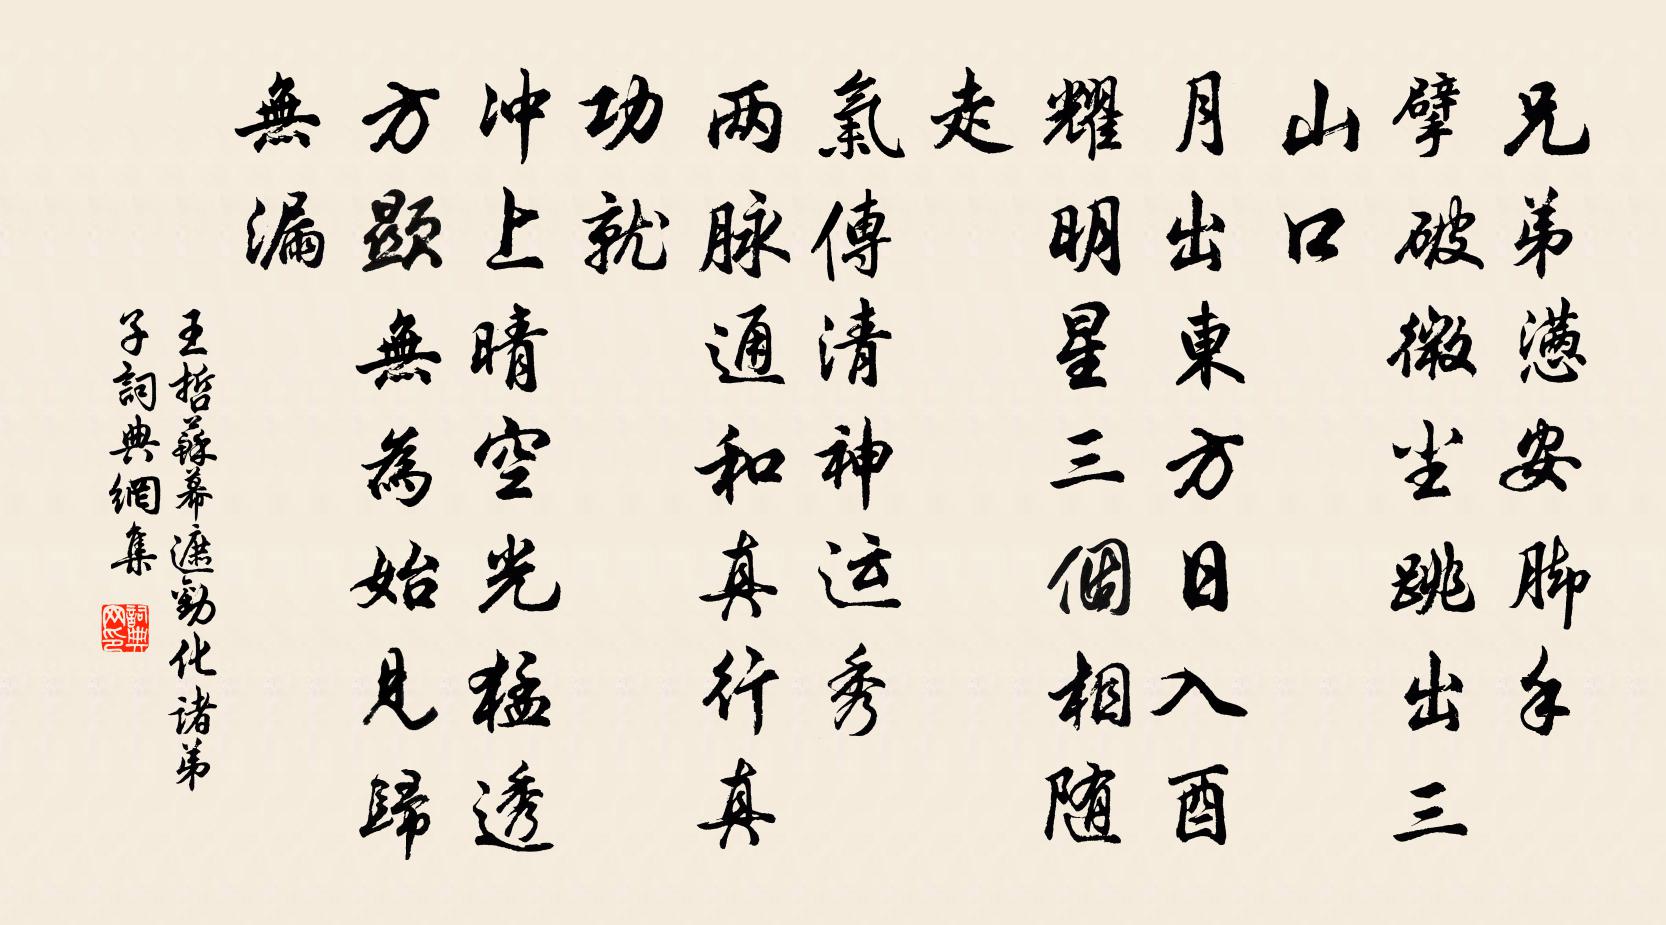 兄弟懑安脚手
擘破微尘跳出三
山口
月出東方日入酉
耀明星三個相随
走
氣傳清神运秀
两脉通和真行真
功就
冲上晴空光猛透
方顯無為始見歸
無漏
王哲蘇幕遮勸化諸弟
子詞典網集
詞典网印